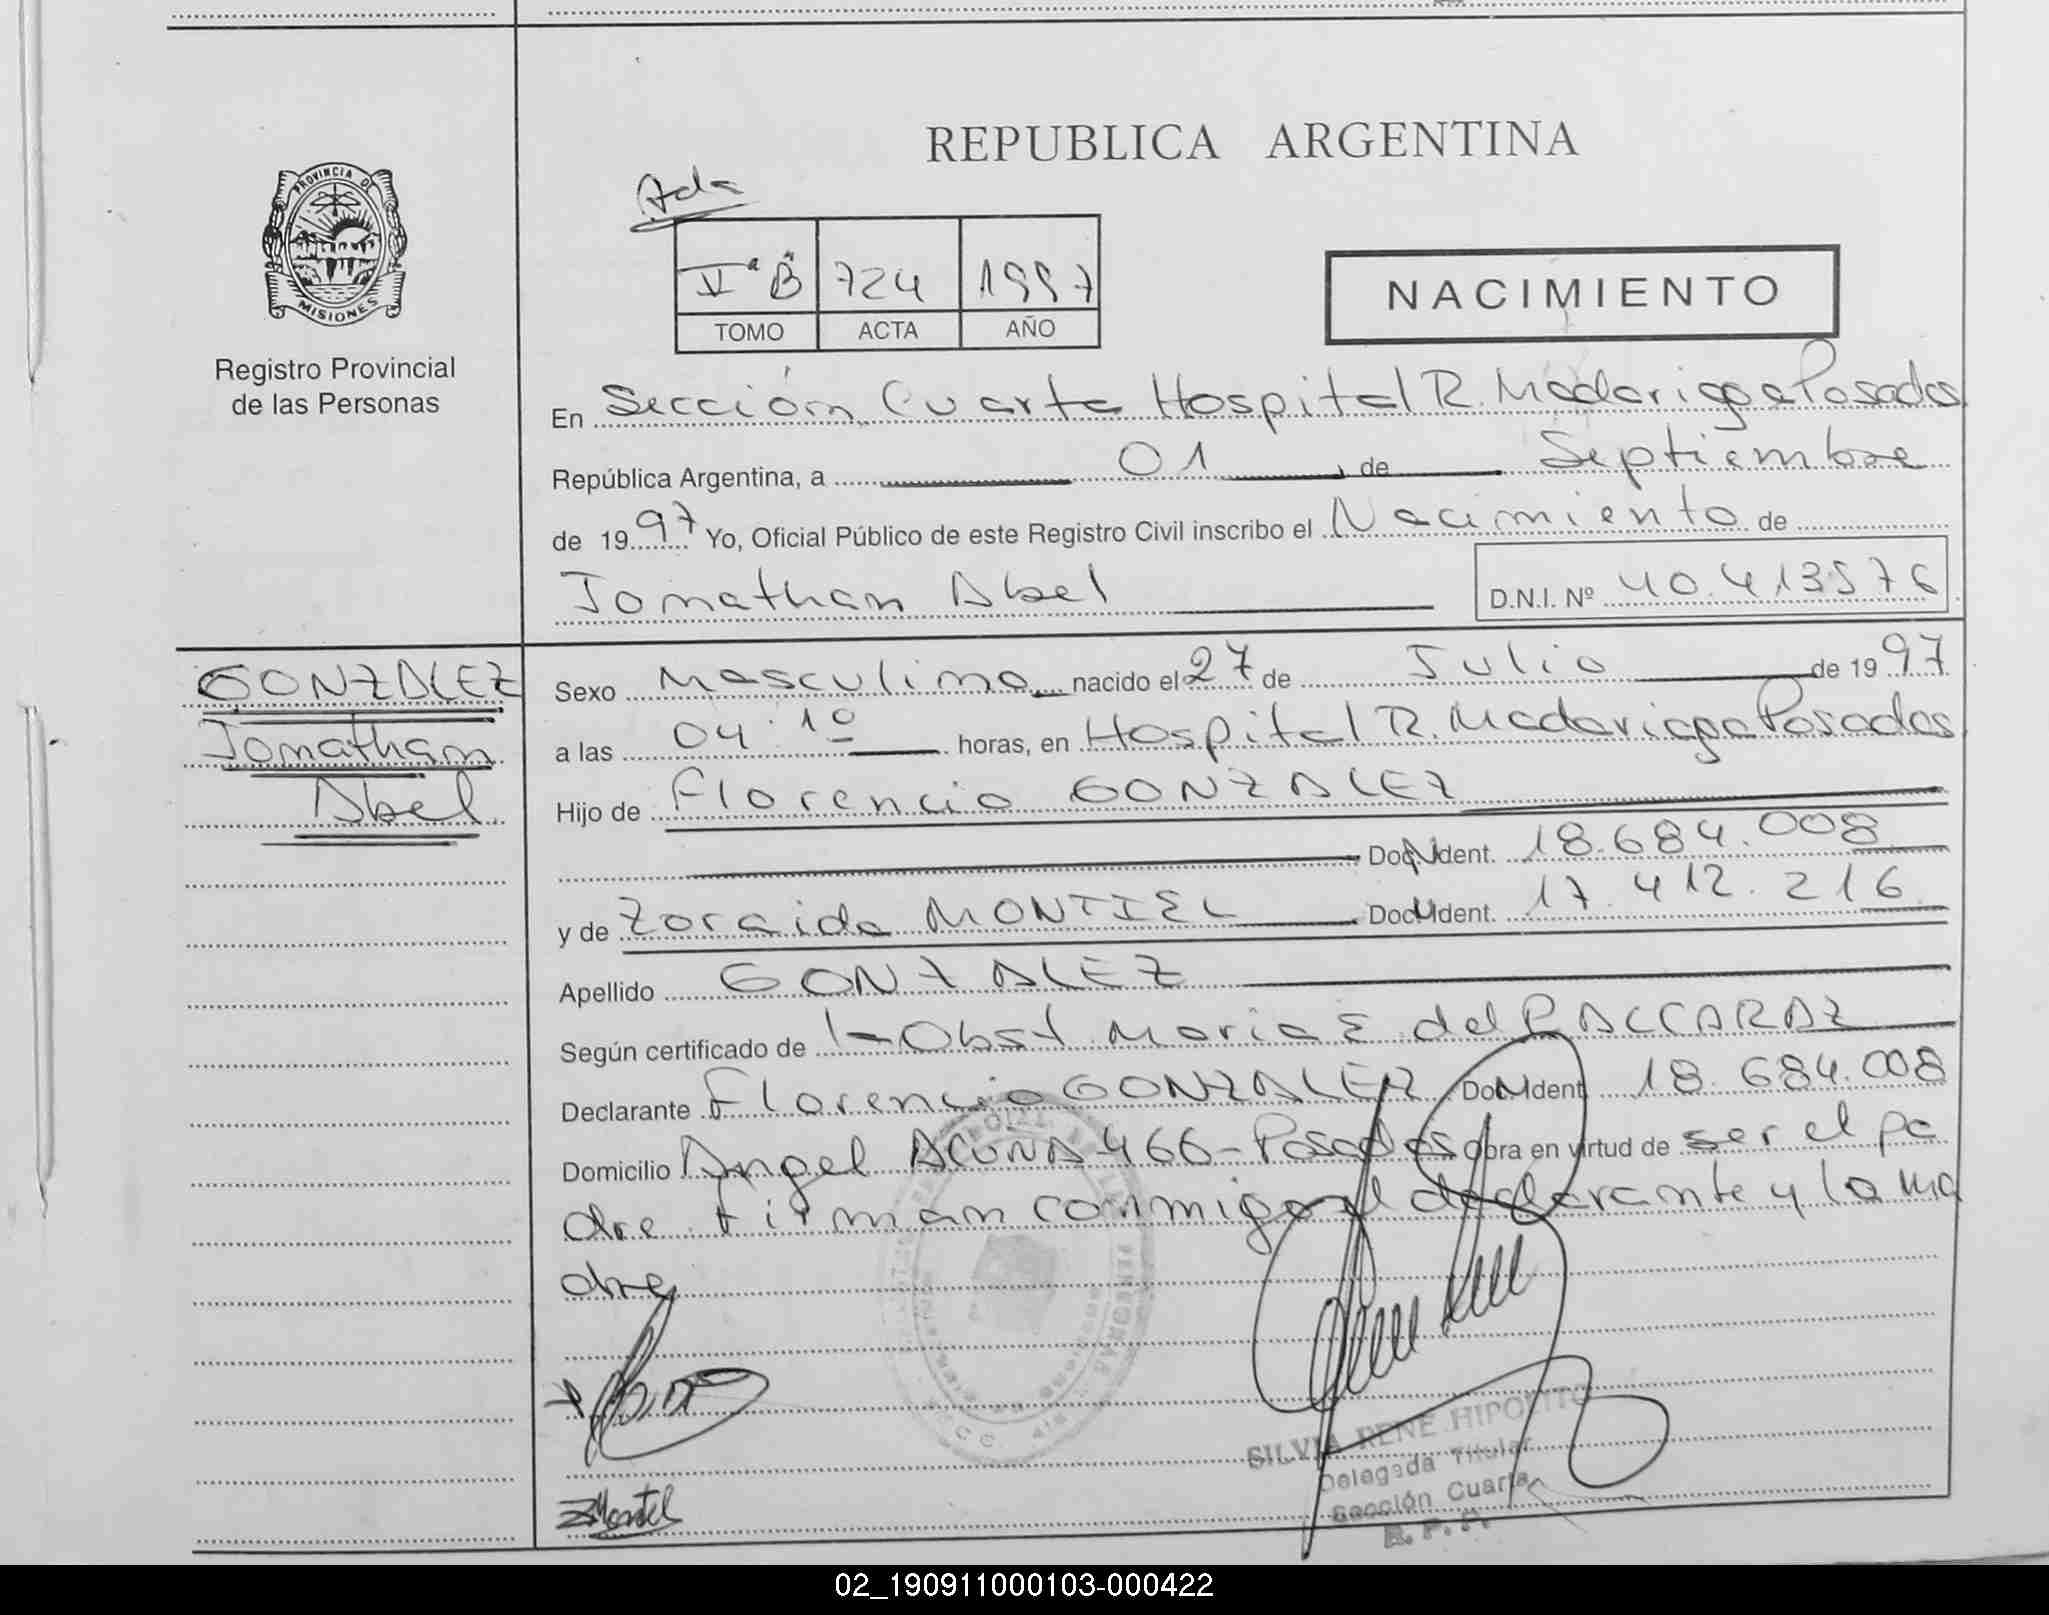 REPUBLICA ARGENTINA
PROVINCIA DE
MISIONES
Registro Provincial
de las Personas
Acta
Vª "B" 724 1997
TOMO ACTA AÑO
NACIMIENTO
En Sección Cuarta Hospital R. Madariaga Posadas
República Argentina, a 01 de Septiembre
de 1997 Yo, Oficial Público de este Registro Civil inscribo el Nacimiento de
Jonathan Abel D.N.I. Nº 40.413576
GONZALEZ
Jonathan
Abel
Sexo Masculino nacido el 27 de Julio de 1997
a las 04:10 horas, en Hospital R. Madariaga Posadas
Hijo de Florencio GONZALEZ
Doc. Ident. 18.684.008
y de Zoraida MONTIEL Doc. Ident. 17.412.216
Apellido GONZALEZ
Según certificado de Obst Maria E del P ALCARAZ
Declarante Florencio GONZALEZ Doc. Ident. 18.684.008
Domicilio Angel ACUÑA 466-Posadas Obra en virtud de ser el pa
dre firman conmigo el declarante y la ma
dre
ZMontiel
SILVIA RENE HIPOLITO
Delegada Titular
Sección Cuarta
R. P. P.
02_190911000103-000422